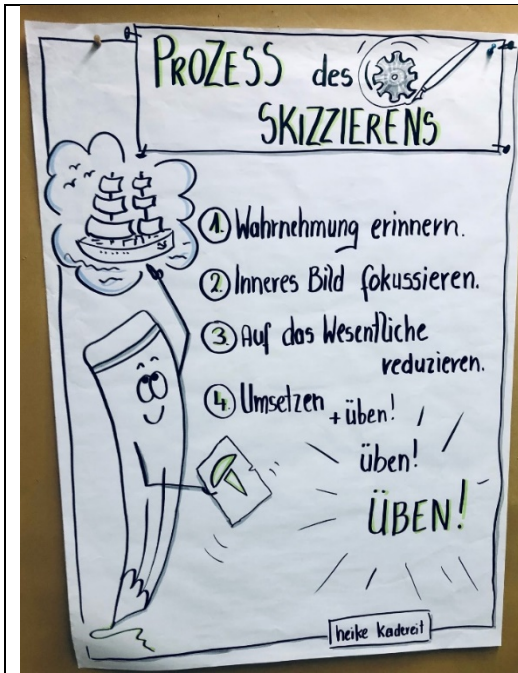 PROZESS des
SKIZZIERENS
1. Wahrnehmung erinnern.
2. Inneres Bild fokussieren.
3. Auf das Wesentliche
reduzieren.
4. Umsetzen + üben!
üben!
ÜBEN!
heike Kadereit